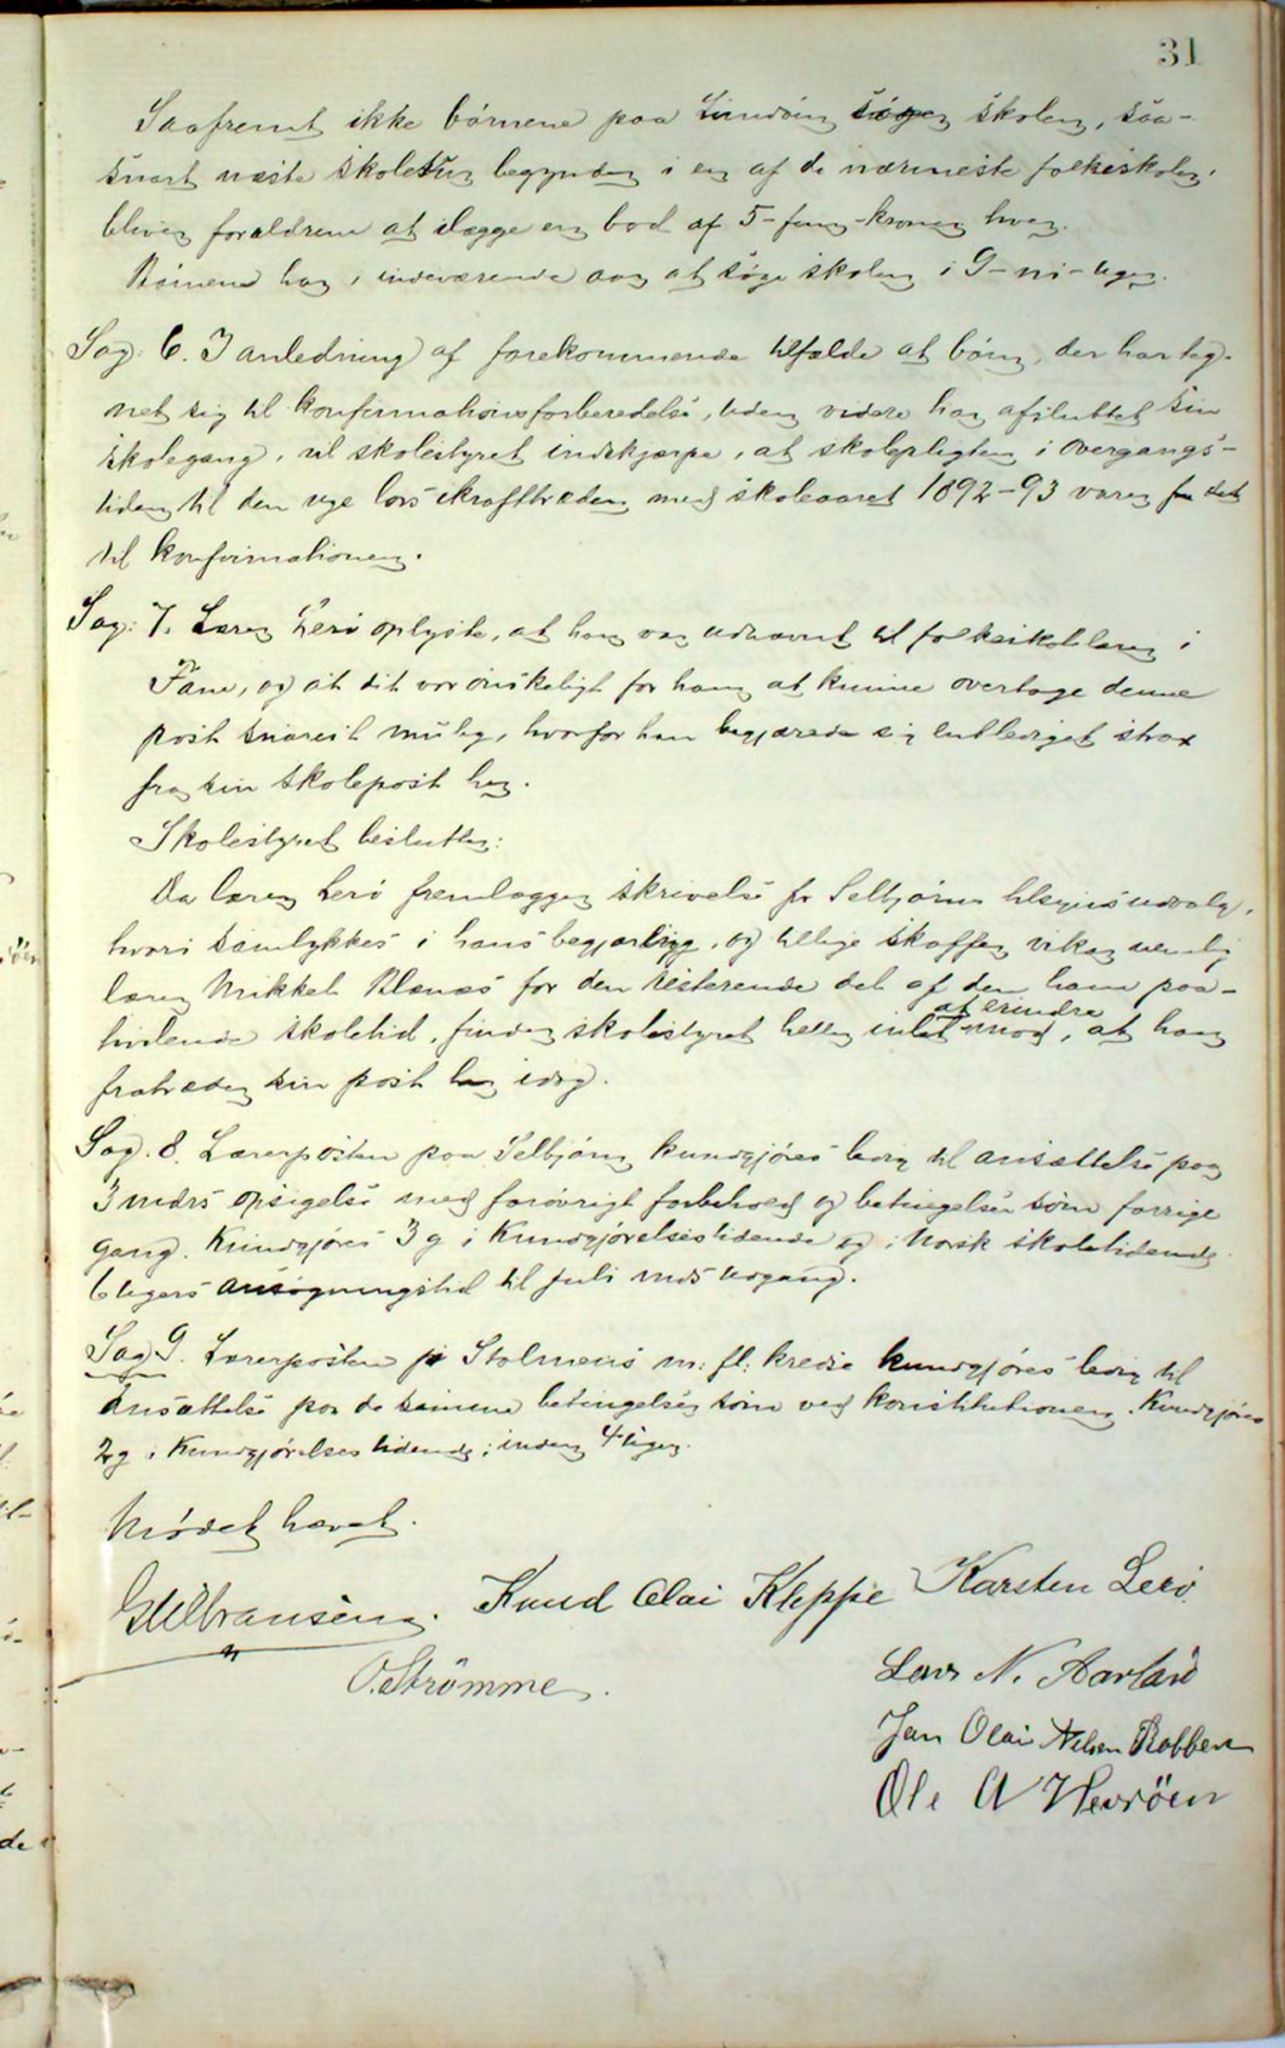 31
Saafremt ikke börnene paa Lindöen söger skolen, saa-
snart næste skoletur begynder i en af de nærmeste folkeskoler,
bliver forældrene at ilægge en bod af 5-fem-kroner hver.
Börnene har i indeværende aar at söge skolen i 9-ni-uger.
Sag: 6. I anledning af forekommende tilfælde at börn, der har teg-
net sig til konfirmationsforberedelse, uden videre har afsluttet sin
skolegang, vil skolestyret indskjærpe, at skolepligten i overgangs-
tiden til den nye lovs ikrafttræden med skoleaaret 1892-93 varer
til konfirmationen.
Sag: 7. Lærer Lerö oplyste, at han var udnævnt til folkeskolelærer i
Fane, og at det var önskeligt for ham at kunne overtage denne
post snarest mulig, hvorfor han begjærede sig entlediget strax
fra sin skolepost her.
Skolestyret beslutter:
Da lærer Lerö fremlægger skrivelse fr Selbjörns tilsynsudvalg,
hvori samtykkes i hans begjæring, og tillige skaffer vikar nemlig
lærer Mikkel Blænæs for den resterende del af den ham paa-
hvilende skoletid, finder skolestyret heller intet at erindre mod, at han
fratræder sin post her idag.
Sag. 8. Lærerposten paa Selbjörn kundgjöres ledig til ansættelse paa
3 mdrs opsigelse med forövrigt forbehold og betingelser som forrige
gang. Kundgjöres 3 g i Kundgjörelsestidende og i Norsk skoletidende
6 ugers ansögningstid til juli mds udgang.
Sag 9. Lærerposten i Stolmens m: fl: kredse kundgjöres ledig til
Ansættelse paa de samme betingelser som ved konstitutionen. Kundgjöres
2 g i Kundgjörelses tidende; inden 4 uger.
Mödet hævet.
Knud Olai Kleppe Karsten Lerö
O. Strömme.
Lars N. Aarland
Jan Olai Nelsen Rabben
Ole A Hevröen